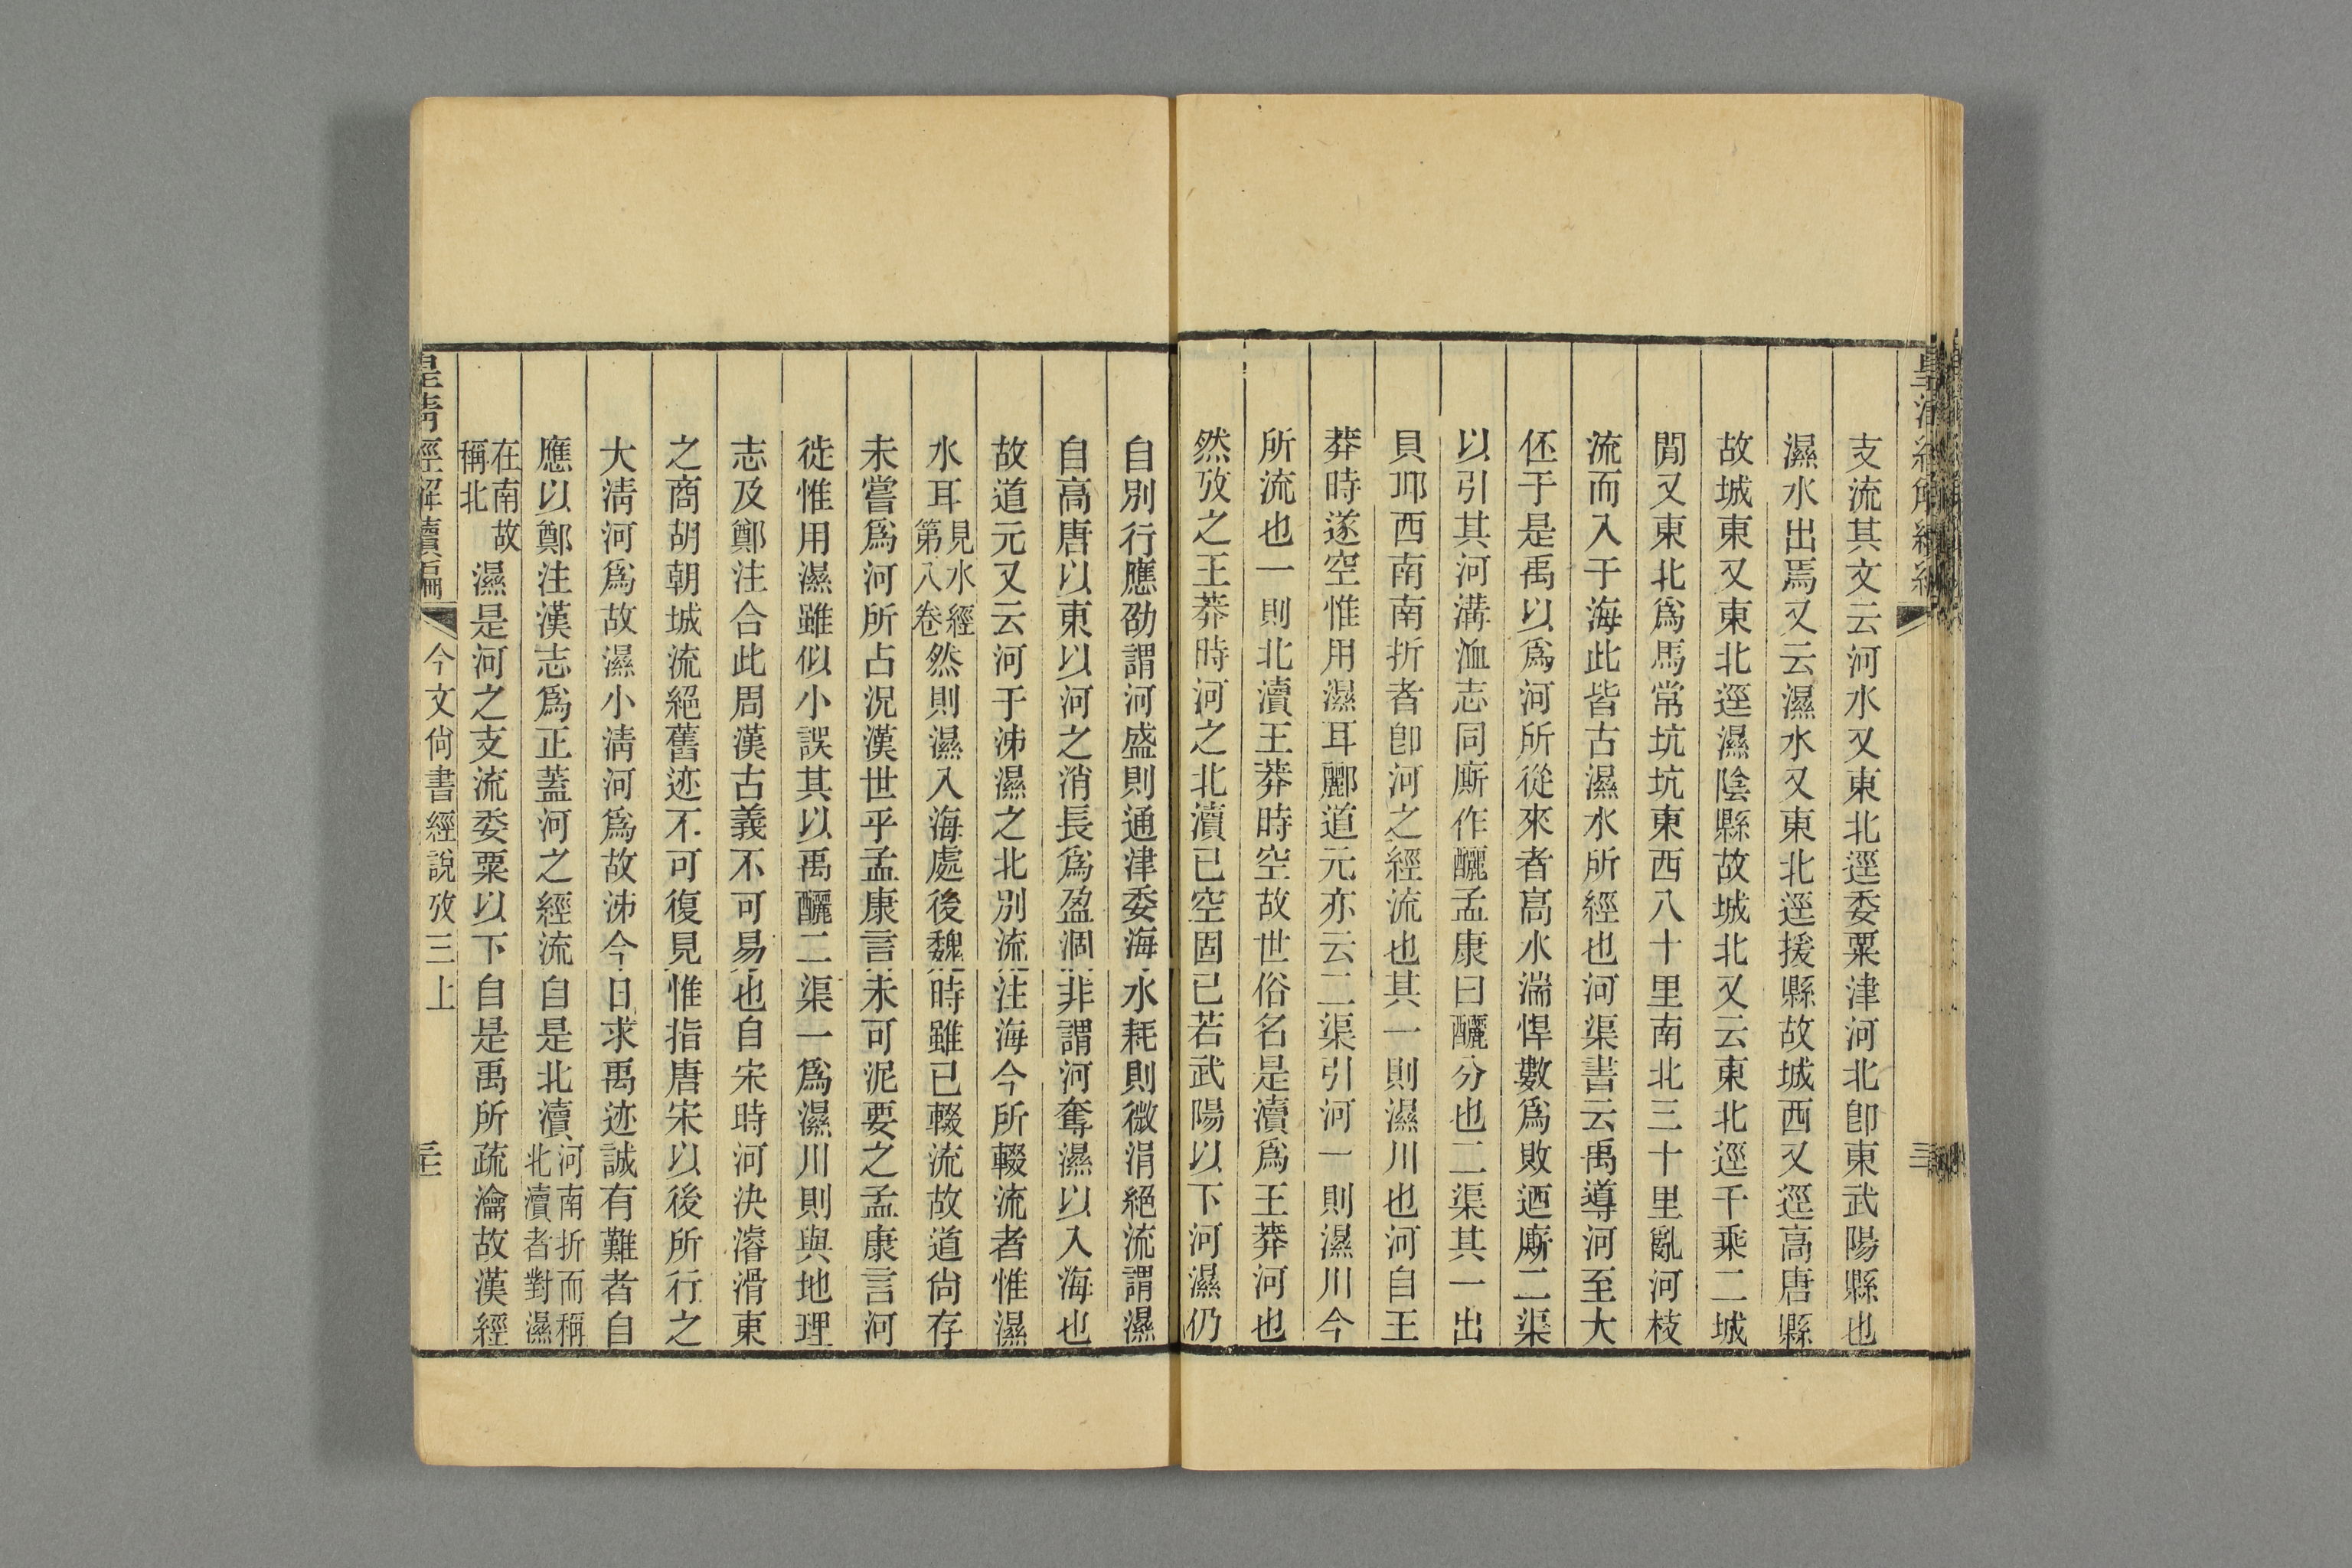 支流其文云河水又東北逕委粟津河北卽東武陽縣也
濕水出焉又云濕水又東北逕援縣故城西又逕高唐縣
故城東又東北逕濕陰縣故城北又云東北逕千乘二城
閒又東北爲馬常坑坑東西八十里南北三十里亂河枝
流而入于海此皆古濕水所經也河渠書云禹導河至大
伾于是禹以爲河所從來者高水湍悍數爲敗迺廝二渠
以引其河溝洫志同廝作釃孟康曰釃分也二渠其一出
貝邱西南南折者卽河之經流也其一則濕川也河自王
莽時遂空惟用濕耳酈道元亦云二渠引河一則濕川今
所流也一則北瀆王莽時空故世俗名是瀆爲王莽河也
然攷之王莽時河之北瀆已空固已若武陽以下河濕仍
自別行應劭謂河盛則通津委海水耗則微涓絕流謂濕
自高唐以東以河之消長爲盈涸非謂河奪濕以入海也
故道元又云河于泲濕之北別流注海今所輟流者惟濕
水耳見水經第八卷然則濕入海處後魏時雖已輟流故道尙存
未嘗爲河所占況漢世乎孟康言未可泥要之孟康言河
徙惟用濕雖似小誤其以禹釃二渠一爲濕川則與地理
志及鄭注合此周漢古義不可易也自宋時河決濬滑東
之商胡朝城流絕舊迹不可復見惟指唐宋以後所行之
大淸河爲故濕小淸河爲故泲今日求禹迹誠有難者自
應以鄭注漢志爲正蓋河之經流自是北瀆河南折而稱北瀆者對濕
在南故稱北濕是河之支流委粟以下自是禹所疏瀹故漢經
皇淸經解續編 今文尙書經說攷三上